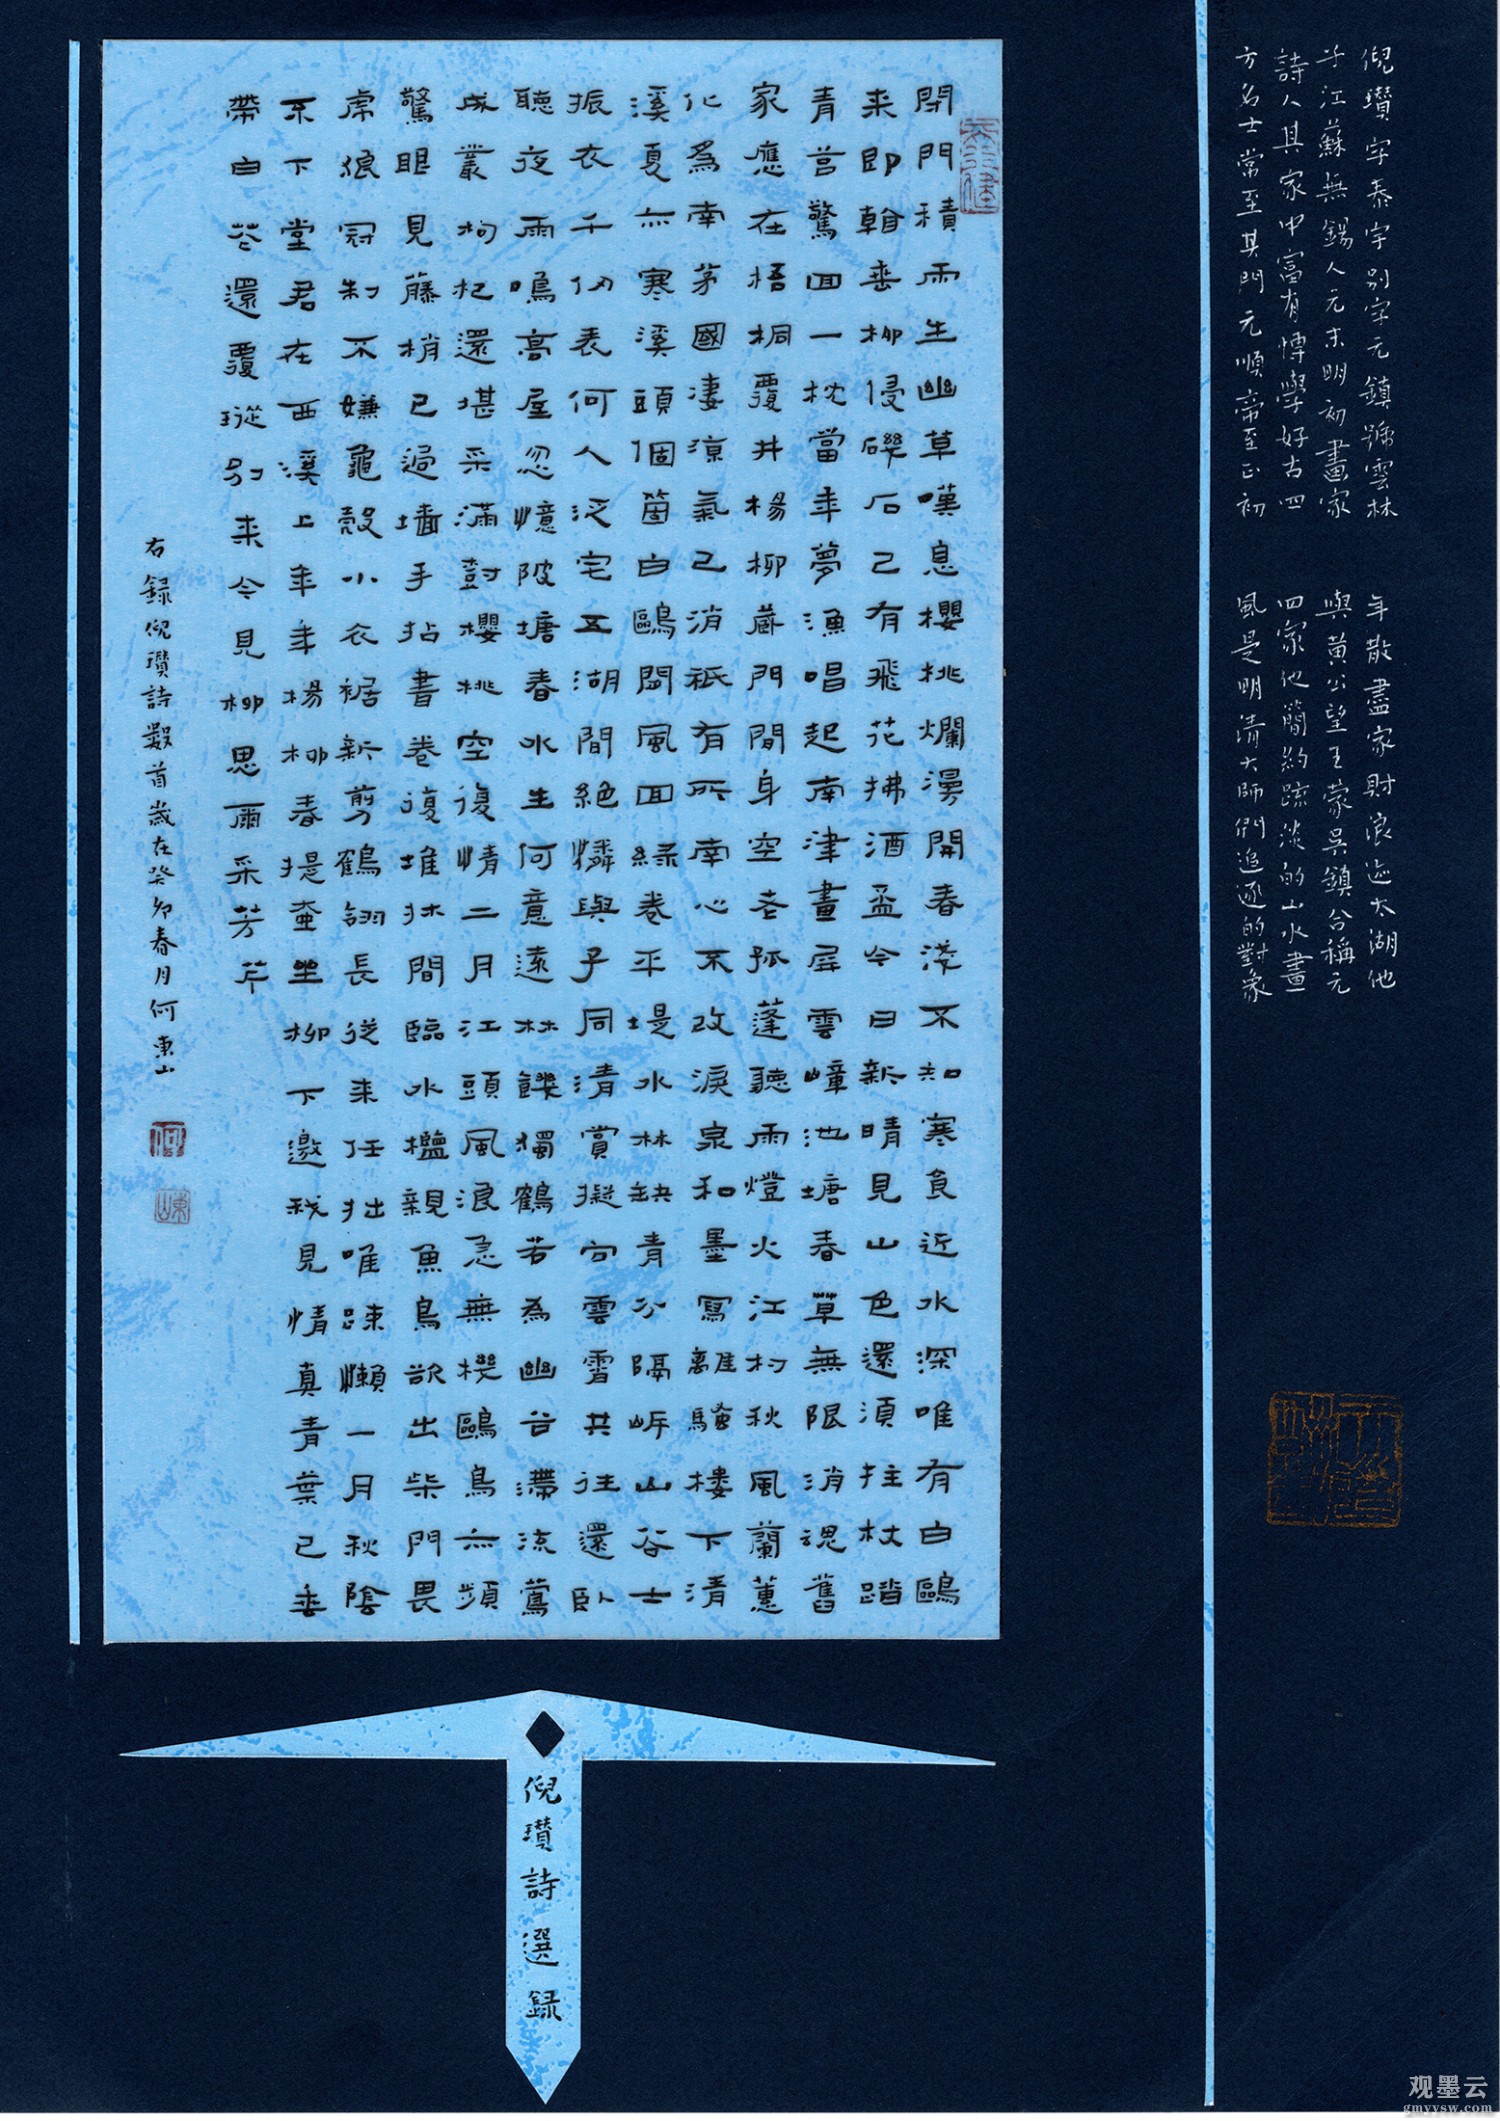 倪瓚字泰字别字元鎮號雲林
子江蘇無錫人元末明初畫家
詩人其家中富有博學好古四
方名士常至其門元順帝至正初
年散盡家財浪迹太湖他
與黃公望王蒙吳鎮合稱元
四家他簡約疏淡的山水畫
風是明清大師們追逐的對象
閉門積雨生幽草嘆息櫻桃爛漫開春淺不知寒食近水深唯有白鷗
来即翰垂柳侵礫石已有飛花拂酒盃今日新晴見山色還須拄杖踏
青苔驚回一枕當年夢漁唱起南津畫屏雲嶂池塘春草無限消魂舊
家應在梧桐覆井楊柳藏門閒身空老孤蓬聽雨燈火江村秋風蘭蕙
化為南茅國淒涼氣已消祇有所南心不改淚泉和墨寫離騷樓下清
溪夏亦寒溪頭個箇白鷗閒風回綠卷平堤水林缺青分隔岸山谷士
振衣千仞表何人泛宅五湖間絕憐與子同清賞擬向雲霄共往還臥
聽夜雨鳴高屋忽憶陂塘春水生何意遠林饑獨鶴若為幽谷滯流鶯
成叢枸杞還堪采滿樹櫻桃空復情二月江頭風浪急無機鷗鳥亦頻
驚眼見藤梢已過墻手拈書卷復堆牀閒臨水檻親魚鳥欲出柴門畏
虎狼冠制不嫌龜殼小衣裾新剪鶴翎長從来任拙唯踈懶一月秋陰
不下堂君在西溪上年年楊柳春提壺坐柳下邀我見情真青葉已垂
帶白花還覆瑽别来今見柳思爾采芳芹
右錄倪瓚詩數首歲在癸卯春月何東山
倪瓚詩選録
观墨云
gmyysw.com